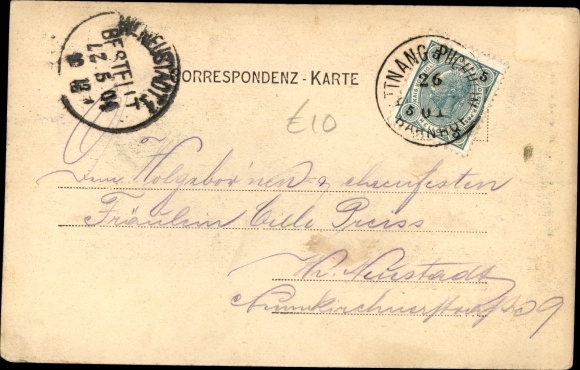 WR. NEUSTADT 1
BESTELLT
22 5 01
CORRESPONDENZ - KARTE
ATTNANG PUCHHEIM
26
01
(BAHNHOF)
5 5
5
£10
Dem Wolgebor'nen & ehrenfesten
Fräulein Celle Preiss
Wr. Neustadt
Neunkirchnerstrasse 09